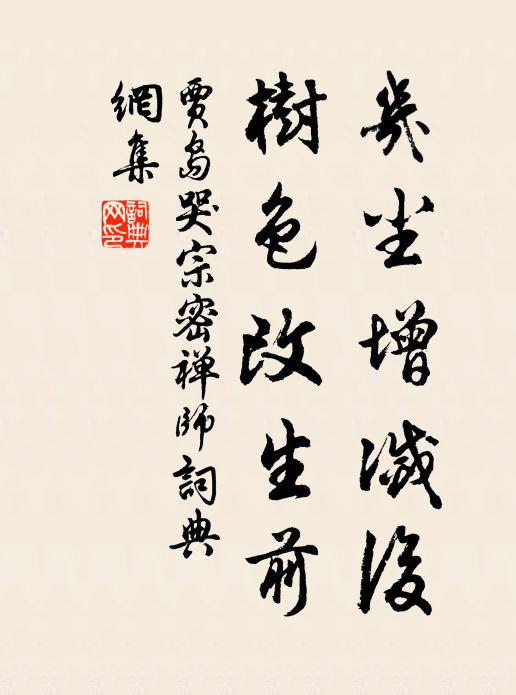 几尘增灭後
樹色改生前
賈島哭宗密禅師詞典
網集
詞典
网印